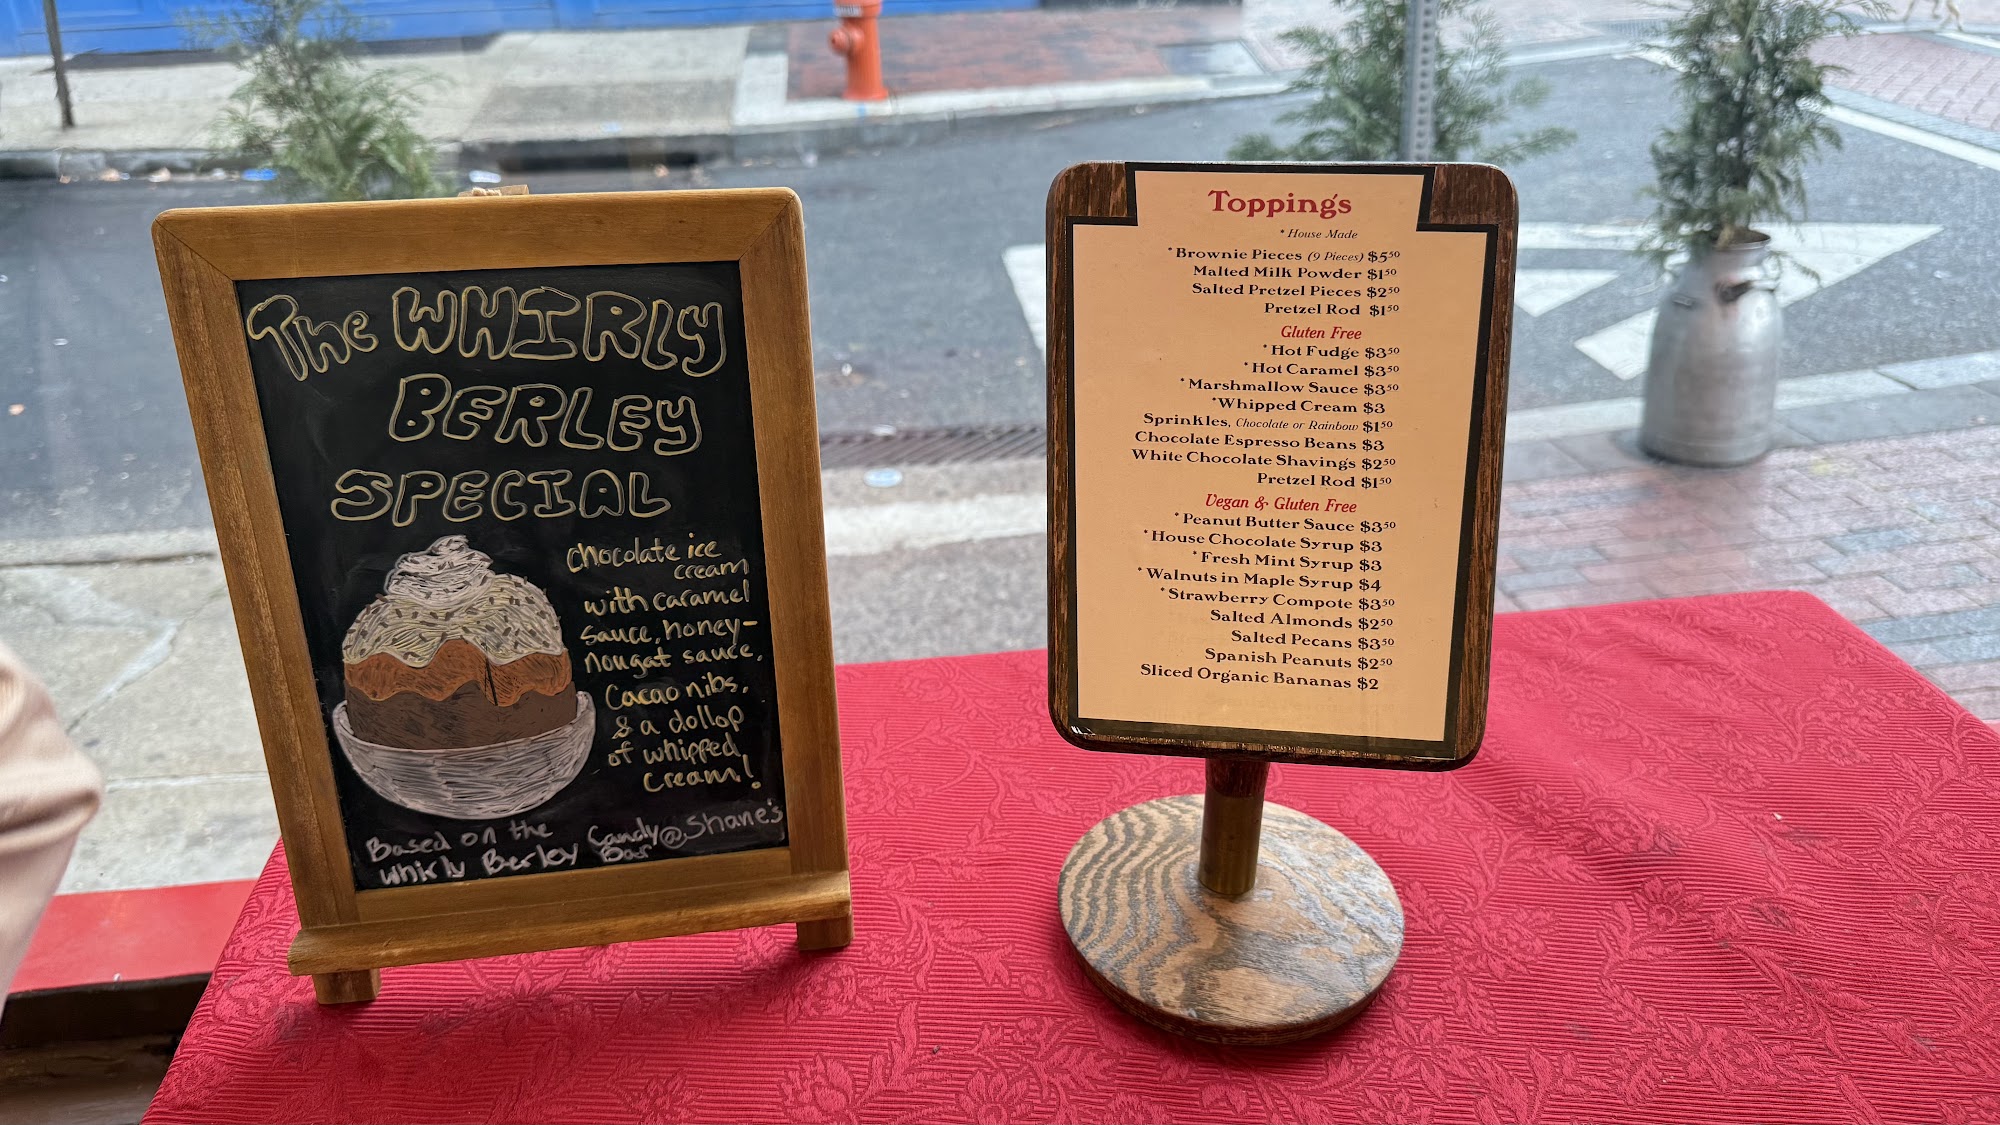 The WHIRLY
BERLEY
SPECIAL
chocolate ice
cream
with caramel
sauce, honey-
nougat sauce,
Cacao nibs,
& a dollop
of whipped
cream!
Based on the
Whirly Berley Candy @ Shane's
Bar
Toppings
* House Made
* Brownie Pieces (9 Pieces) $5⁵⁰
Malted Milk Powder $1⁵⁰
Salted Pretzel Pieces $2⁵⁰
Pretzel Rod $1⁵⁰
Gluten Free
* Hot Fudge $3⁵⁰
* Hot Caramel $3⁵⁰
* Marshmallow Sauce $3⁵⁰
* Whipped Cream $3
Sprinkles, Chocolate or Rainbow $1⁵⁰
Chocolate Espresso Beans $3
White Chocolate Shavings $2⁵⁰
Pretzel Rod $1⁵⁰
Vegan & Gluten Free
* Peanut Butter Sauce $3⁵⁰
* House Chocolate Syrup $3
* Fresh Mint Syrup $3
* Walnuts in Maple Syrup $4
* Strawberry Compote $3⁵⁰
Salted Almonds $2⁵⁰
Salted Pecans $3⁵⁰
Spanish Peanuts $2⁵⁰
Sliced Organic Bananas $2